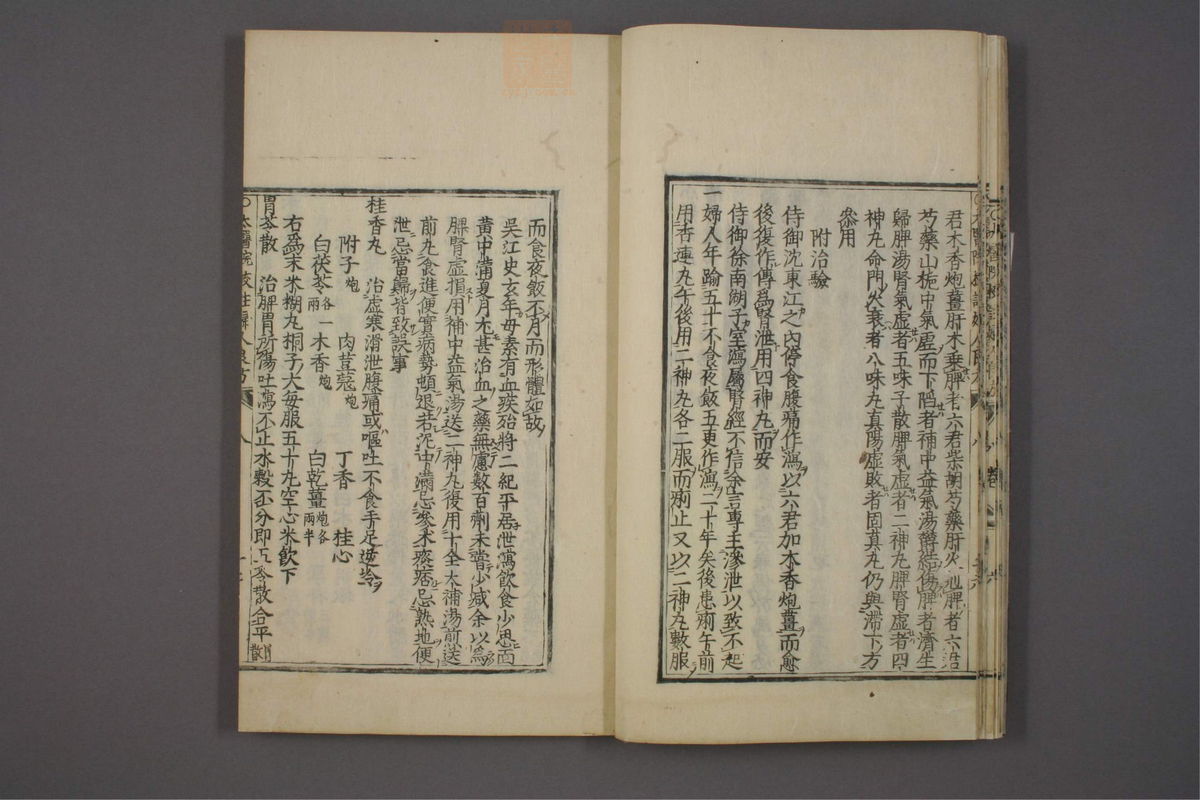 君木香炮薑肝木乗脾者六君柴胡芍藥肝火乘脾者六君
芍藥山梔中氣虛而下陷者補中益氣湯欝結傷脾者濟生
歸脾湯腎氣虛者五味子散脾氣虛者二神丸脾腎虛者四
神丸命門火衰者八味丸真陽虛敗者固真丸仍與滯下方
叅用
附治驗
侍御沈東江之内停食腹痛作瀉以六君加木香炮薑而愈
後復作傳爲腎泄用四神丸而安
侍御徐南湖子室瀉屬腎經不信余言專主滲泄以致不起
一婦人年踰五十不食夜飯五更作瀉二十年矣後患痢午前
用香連丸午後用二神丸各二服而痢止又以二神丸數服
而食夜飯不月而形體如故
吳江史玄年母素有血疾殆將二紀平居泄瀉飲食少思面
黃中滿夏月尤甚治血之藥無慮數百劑未嘗少減余以爲
脾腎虛損用補中益氣湯送二神丸復用十全大補湯前送
前丸食進便實病勢頓退若泥中滿忌參术痰痞忌熟地便
泄忌當歸皆致誤事
桂香丸　治虛寒滑泄腹痛或嘔吐不食手足逆冷
附子炮　肉荳蔻炮　丁香　桂心
白茯苓各一兩　木香炮　白乾薑炮各兩半
右爲末米糊丸桐子大每服五十丸空心米飲下
胃苓散　治脾胃所傷吐瀉不止水穀不分即五苓散合平胃散